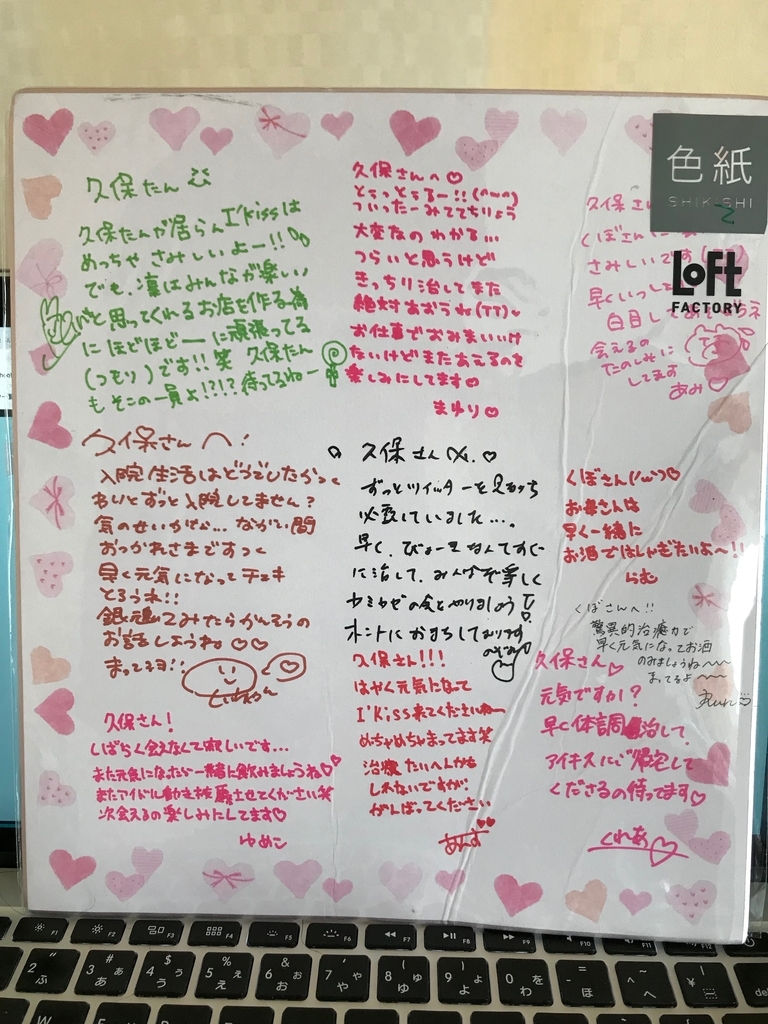 久保たん
久保たんが居らん I'Kissは
めっちゃ さみしいよー!!
でも、凜はみんなが楽しい
と思ってくれるお店を作る為
に ほどほどーに頑張ってる
(つもり)です!!笑 久保たん
も そこの一員よ!?!? 待ってるねー
久保さんへ♡
とぅっとぅるー!!(^ω^)
ついったーみててちょう
大変なの わかる...
つらいと思うけど
きっちり治してまた
絶対あおうね(TT)
お仕事でおみまいいけ
ないけどまたあえるのを
楽しみにしてます♡
まゆり♡
色紙
SHIKISHI
LOFT
FACTORY
久保さん
くぼさんに
さみしいです
早くいっし
白目して
会えるの
たのしみに
してます
あみ
久保さんへ!
入院生活はどうでしたかっ
わりとずっと入院してません?
気のせいかな... ながい間
おつかれさまですっ
早く元気になってチェキ
とろうね!!
銀魂みたらかんそうの
お話しようね♡♡
まってるヨ!!
久保さん♡
ずっとツイッターを見ながら
心配していました...。
早く、びょーきなんてすぐ
に治して、みんなで楽しく
カミカゼの会とやりましょう
ホントにおまちしております
のぞみ
くぼさん('ω')♡
お母さんは
早く一緒に
お酒ではしゃぎたいよ〜!!
らむ
くぼさんへ!!
驚異的治癒力で
早く元気になってお酒
のみましょうね〜〜
まってるよ〜〜
久保さん!
しばらく会えなくて寂しいです...
また元気になったら一緒に飲みましょうね♡♡
またアイドル動き披露させてください笑
次会えるの楽しみにしてます♡
ゆめこ
久保さん!!!
はやく元気になって
I'Kiss来てくださいねー
めちゃめちゃまってます笑
治療 たいへんかも
しれないですが
がんばってください
あんず
久保さん♡
元気ですか?
早く体調治して、
アイキスにご帰宅して
くださるの待ってます♡
くれあ♡
F1
F2
F3
F4
F5
F6
F7
F8
F9
F10
F11
F12
2 ふ
# 3 あ
$ 4 う
% 5 え
& 6 お
' 7 や
( 8 ゆ
) 9 よ
0 わ
= - ほ
~ ^ へ
del
W